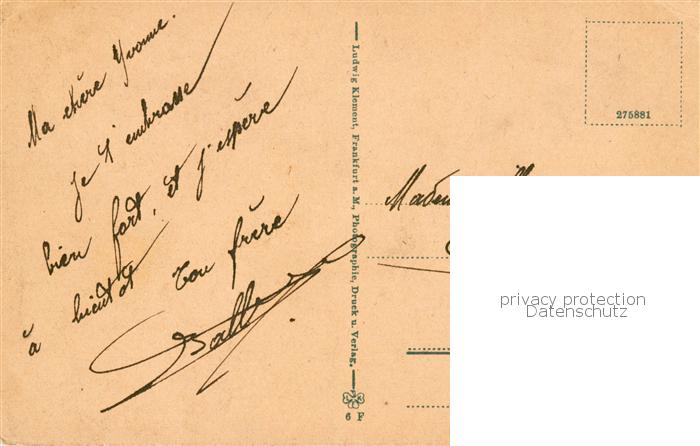 Ma chère Yvonne.
Je t'embrasse
bien fort, et j'espère
à bientôt Ton frère
Ludwig Klement, Frankfurt a. M., Photographie, Druck u. Verlag.
6 F
275881
privacy protection
Datenschutz